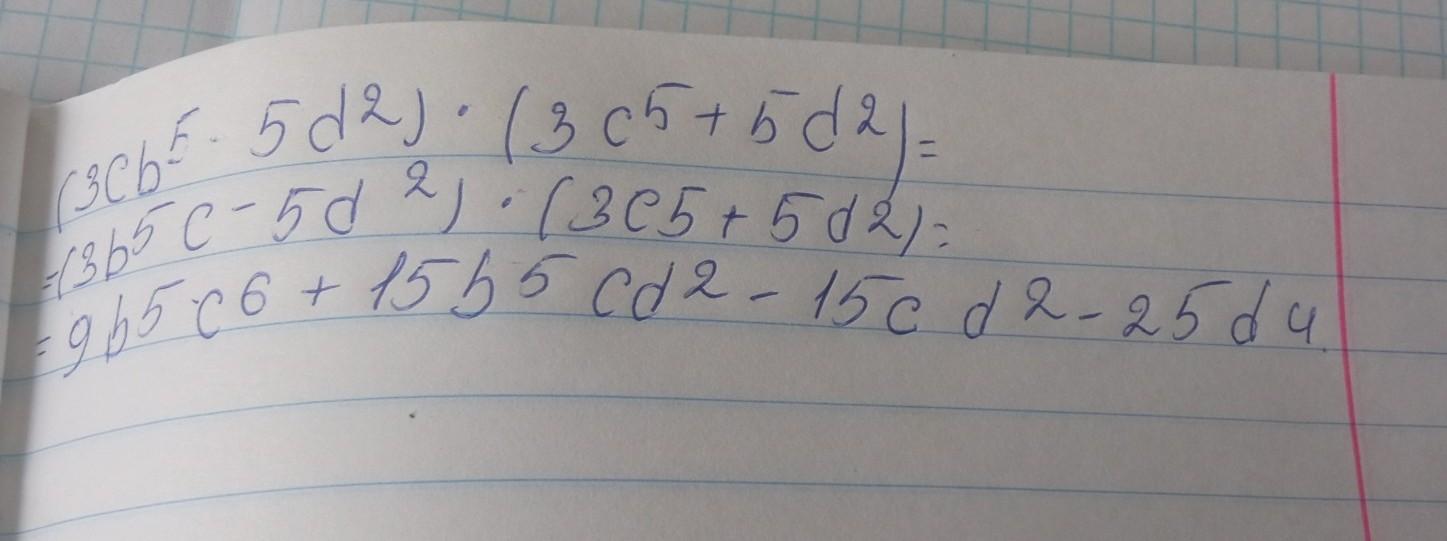 (3cb⁵ - 5d²) · (3c⁵ + 5d²) =
= (3b⁵c - 5d²) · (3c5 + 5d2) =
= 9b5c6 + 15b⁵cd² - 15c d² - 25d4.